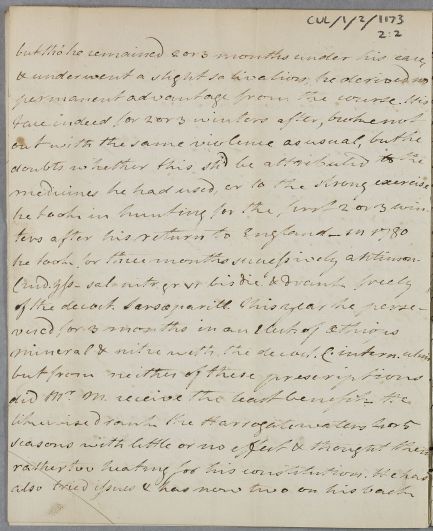 CUL/1/2/1173
2:2
but tho' he remained 2 or 3 months under his care,
& underwent a slight salivation, he derived no
permanent advantage from the course. His
face indeed, for 2 or 3 winters after, broke not
out with the same violence as usual, but he
doubts whether this shd. be attributed to the
medicines he had used, or to the strong exercise
he took in hunting for the first 2 or 3 win-
ters after his return to England_ in 1780
he took for three months successively antimon
Crud. sal nitr gr vi bis die & drank freely
of the decoct. Sarsaparill. This year he perse-
vered for 3 months in an Elect. of Æthiops
mineral & nitre with the decoct. C.
but from neither of these prescriptions
did Mr. M. receive the least benefit_ He
likewise drank the Harrogate waters 4 or 5
seasons with little or no effect & thought them
rather too heating for his constitution. He has
also tried issues & has now two on his back